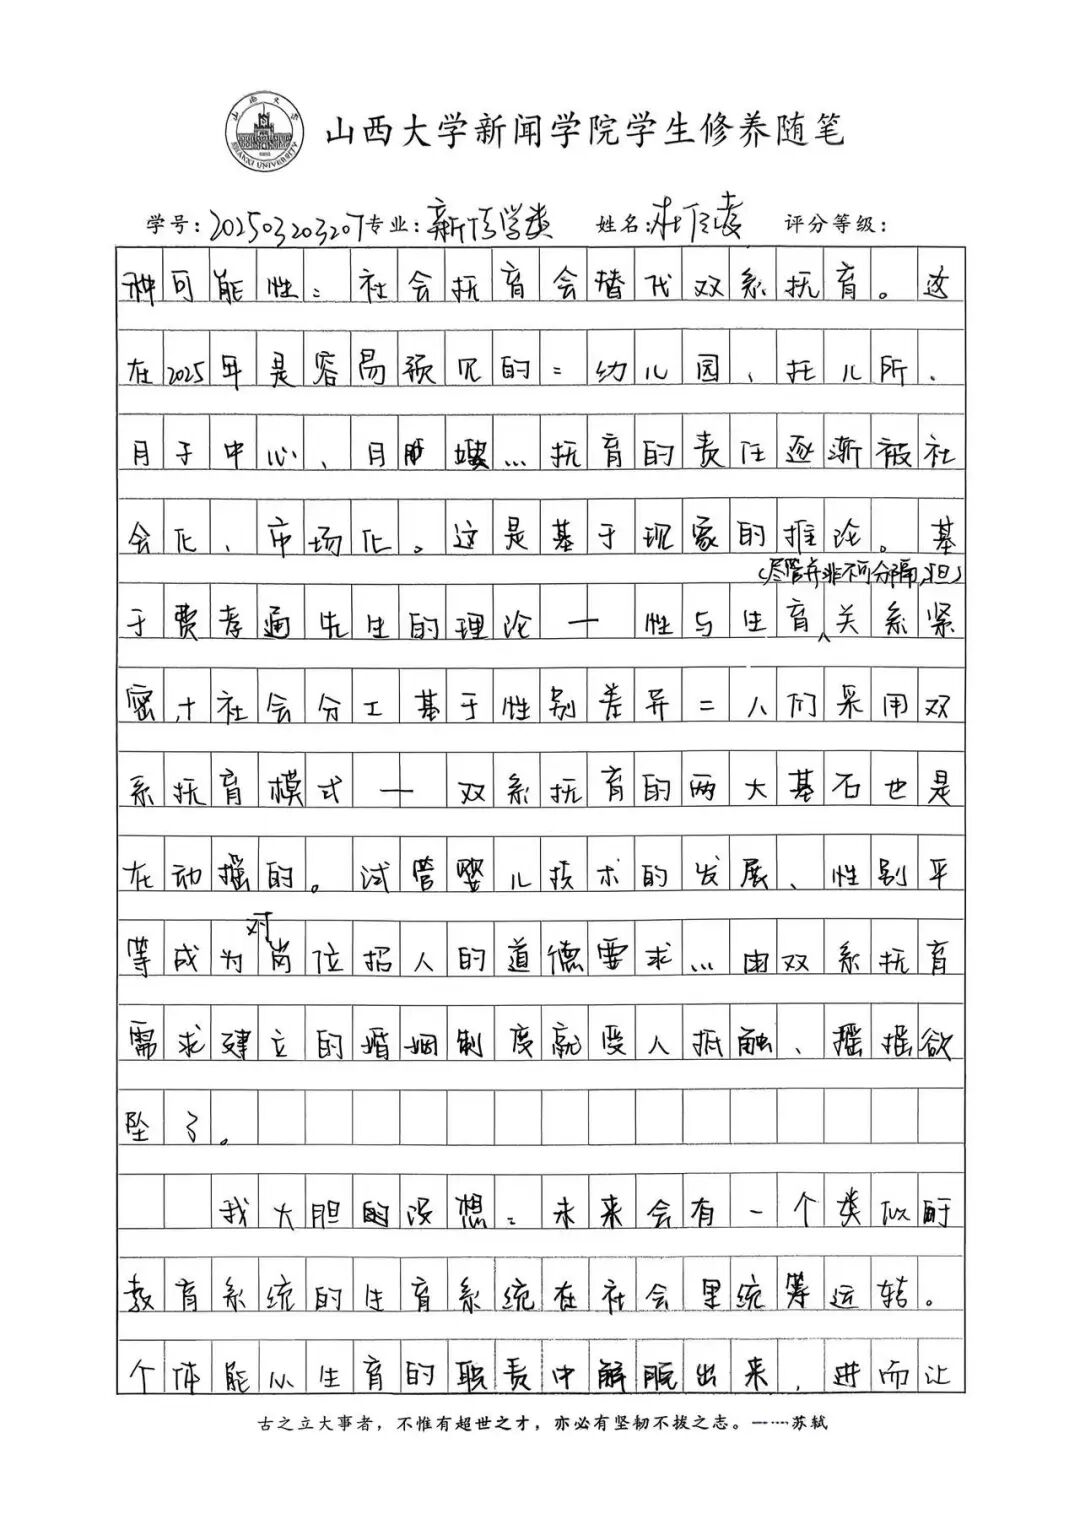 山西大学新闻学院学生修养随笔
SHANXI UNIVERSITY
学号:202503203207 专业:新传学类 姓名:杜 评分等级:
种可能性：社会抚育会替代双系抚育。这
在2025年是容易预见的：幼儿园、托儿所、
月子中心、月嫂…抚育的责任逐渐被社
会化、市场化。这是基于现象的推论。基
(尽管并非不可分隔,但)
于费孝通先生的理论—性与生育关系紧
密,+社会分工基于性别差异=人们采用双
系抚育模式—双系抚育的两大基石也是
在动摇的。试管婴儿技术的发展、性别平
等成为对岗位招人的道德要求…由双系抚育
需求建立的婚姻制度就受人抵触、摇摇欲
坠了。
我大胆的设想：未来会有一个类似于
教育系统的生育系统在社会里统筹运转。
个体能从生育的职责中解脱出来,进而让
古之立大事者，不惟有超世之才，亦必有坚韧不拔之志。——苏轼